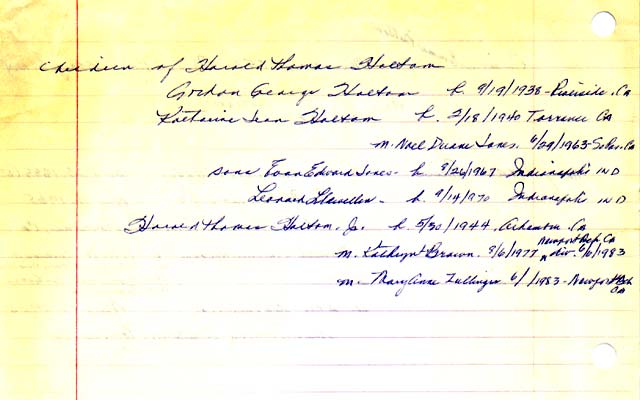 Children of Harold Thomas Holtom
Gordon George Holtom b. 9/19/1938 - Riverside, Ca
Katharine Jean Holtom b. 2/18/1940 Torrance CA
m. Noel Duane Jones. 6/29/1963 - Ca
sons Evan Edward Jones - b 8/26/1967 Indianapolis IND
Leonard Llewellen - b. 9/14/1970 Indianapolis IND
Harold Thomas Holtom, Jr. b. 5/30/1944, Ca
m. Kathryn Brown. 8/6/1977 Newport Bch, Ca
div. 6/6/1983
m. Mary Anne 6/ /1983 - Newport Bch
CA